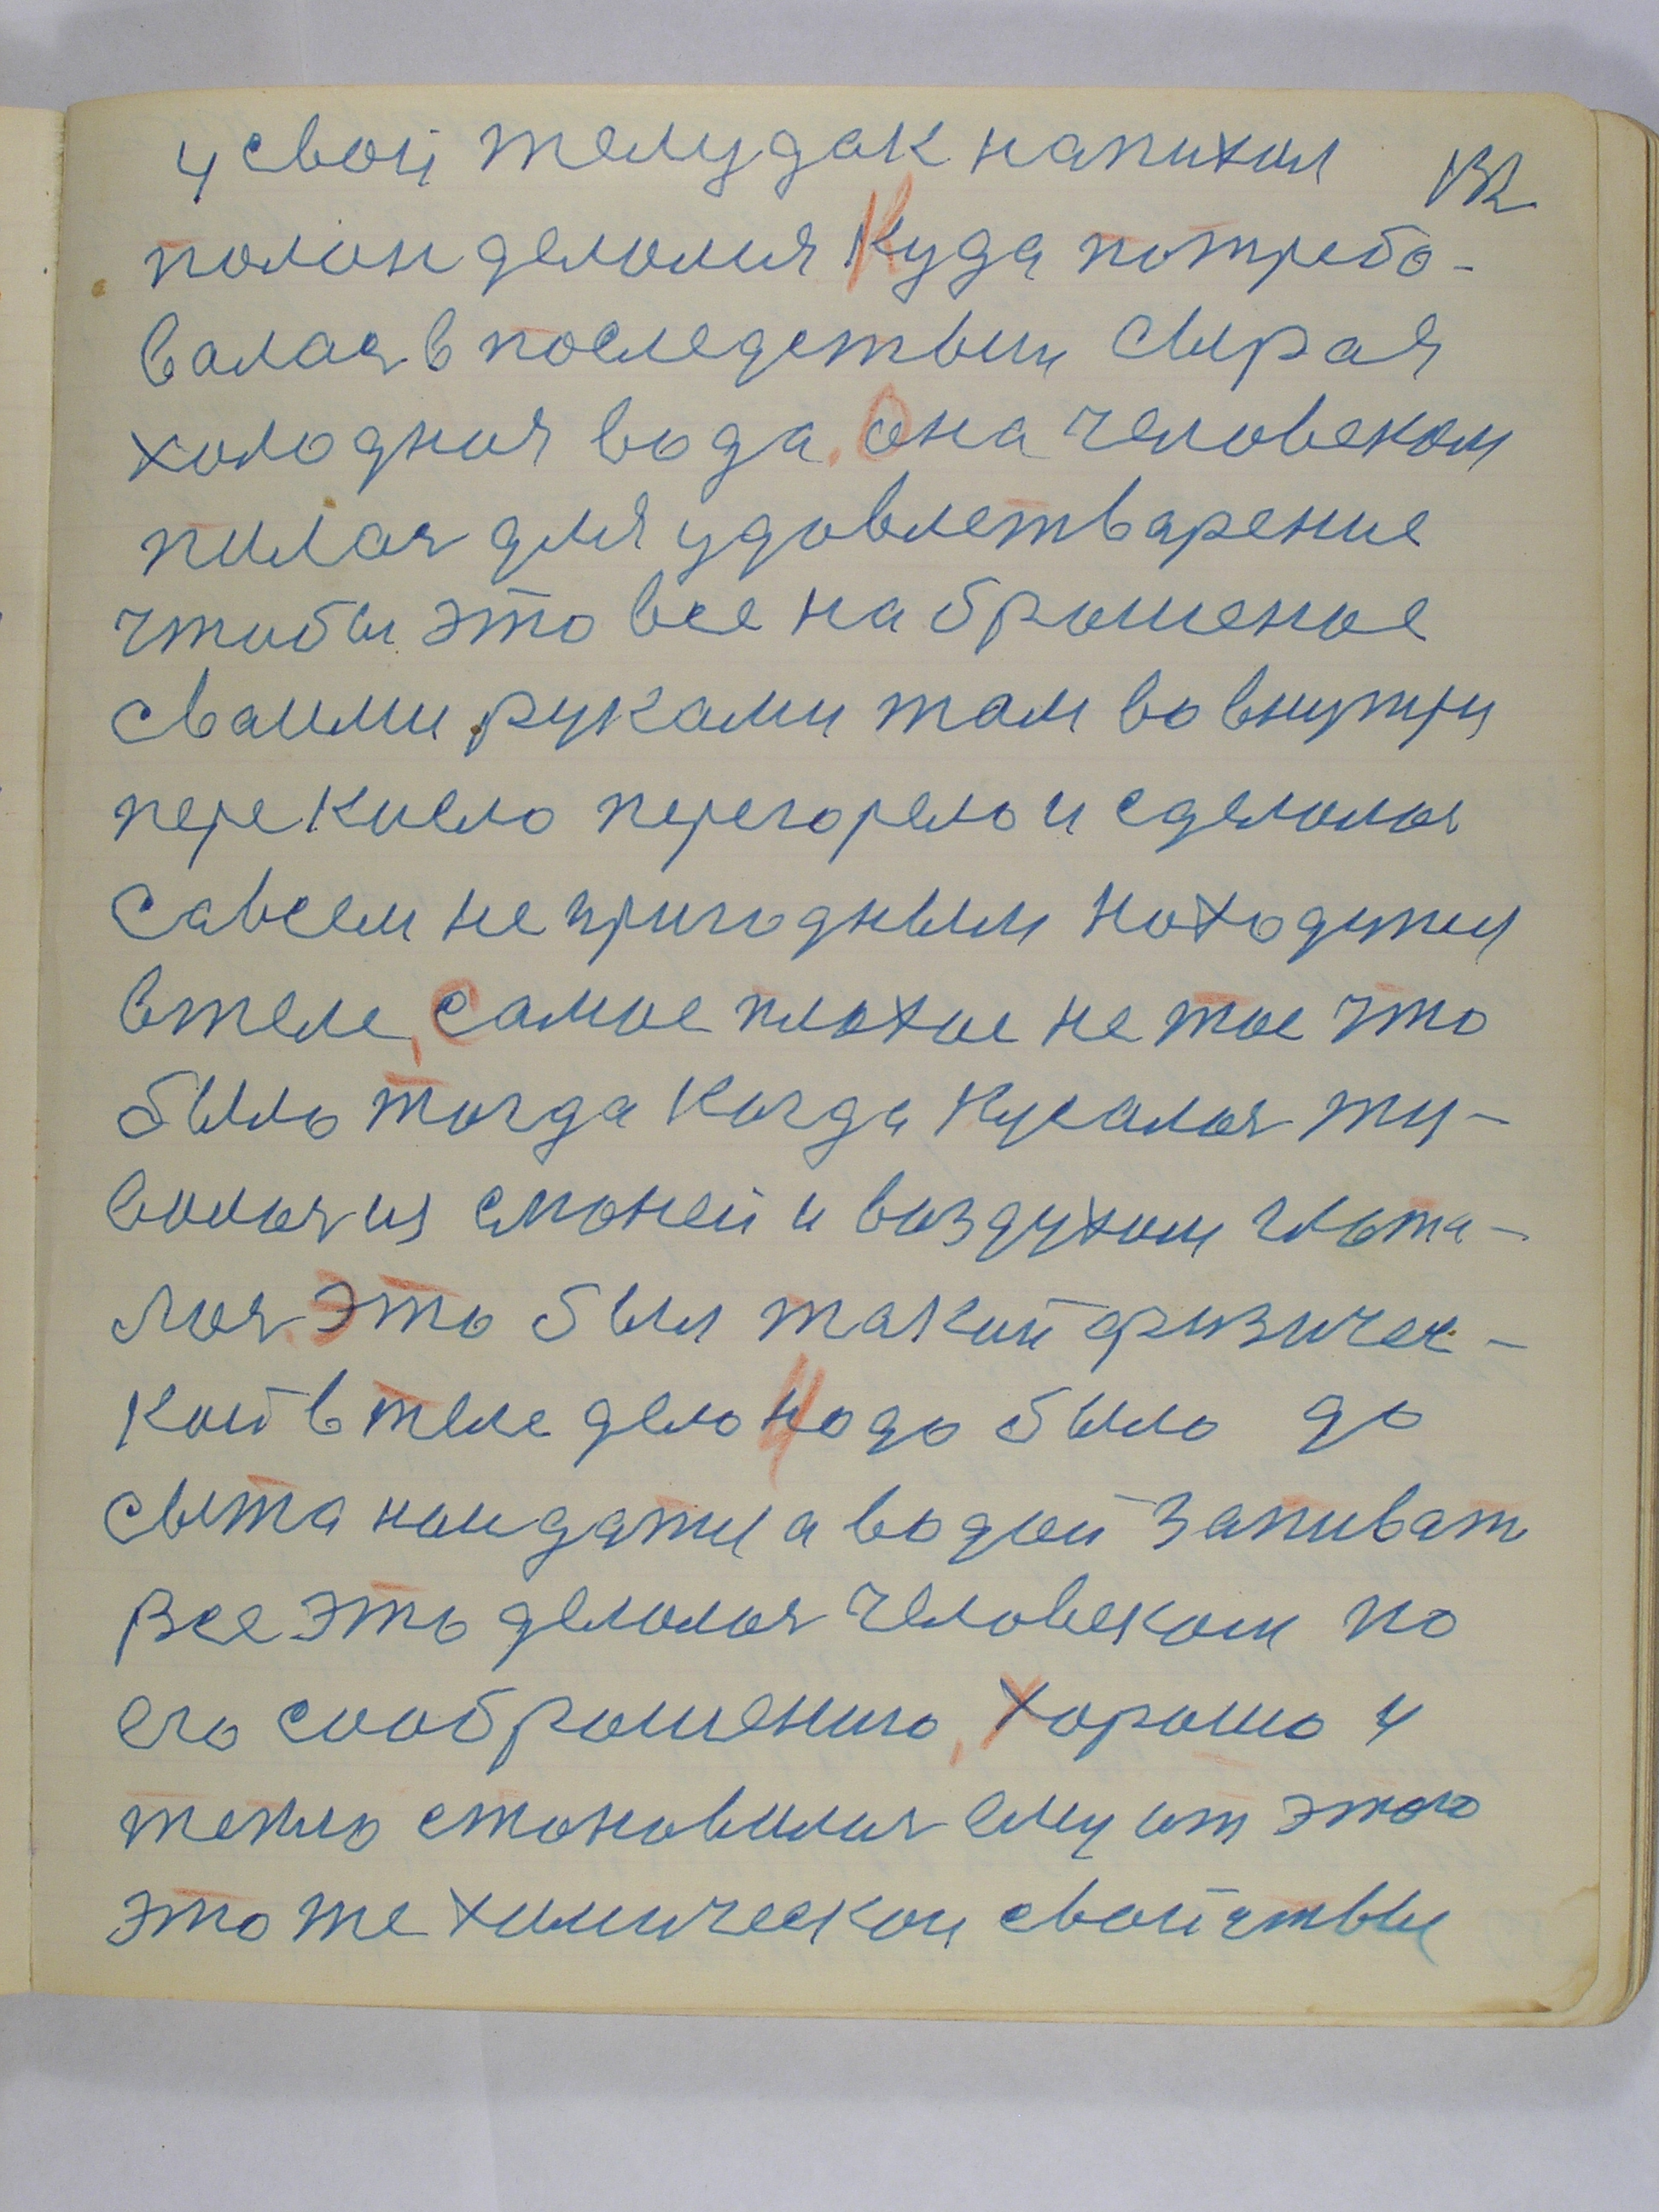 и свой желудак напихал
полон делался Куда потребо-
валася в последствии сырая
холодная вода. Она человеком
пилася для удовлетварение
чтобы это все наброшеное
сваими руками там во внутри
перекисло перегорело и сделалося
савсем не пригодным находится
в теле, Самое плохое не тое что
было тогда когда кусалося жу-
валося и слюней и воздухом глота-
лося. Это был такий физичес-
кой в теле дело Надо было до
сыта наидатся а водой запиват
Все это делалося человеком по
его соображению, Хорошо и
тепло становилося ему от этого
это же химической свойствы